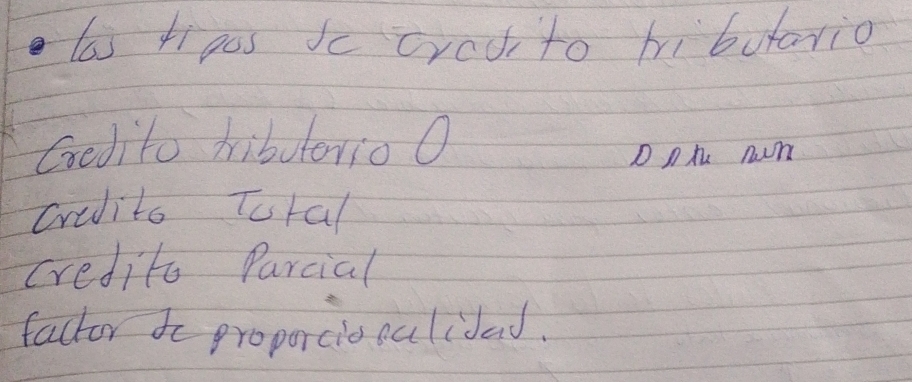 • los tipos de credito tributario
Credito tributario 0
Credito Total
Credito Parcial
factor de proporcionalidad.